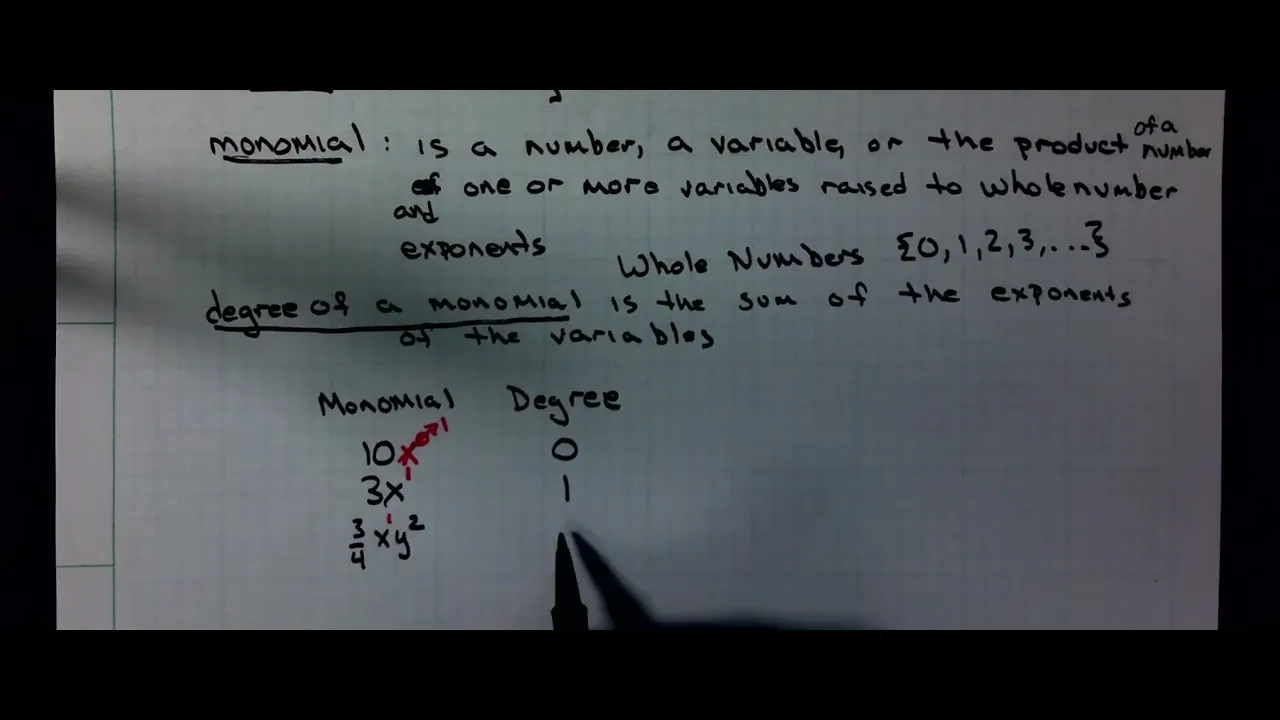 monomial: is a number, a variable, or the product of a number
and one or more variables raised to whole number
exponents
Whole Numbers {0, 1, 2, 3, ...}
degree of a monomial is the sum of the exponents
of the variables
Monomial Degree
10x⁰→1 0
3x¹ 1
3/4 x¹y²